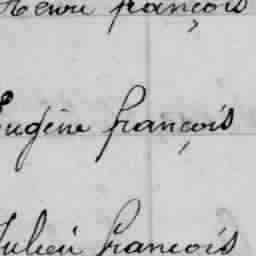 Henri françois
Eugène françois
Julien françois